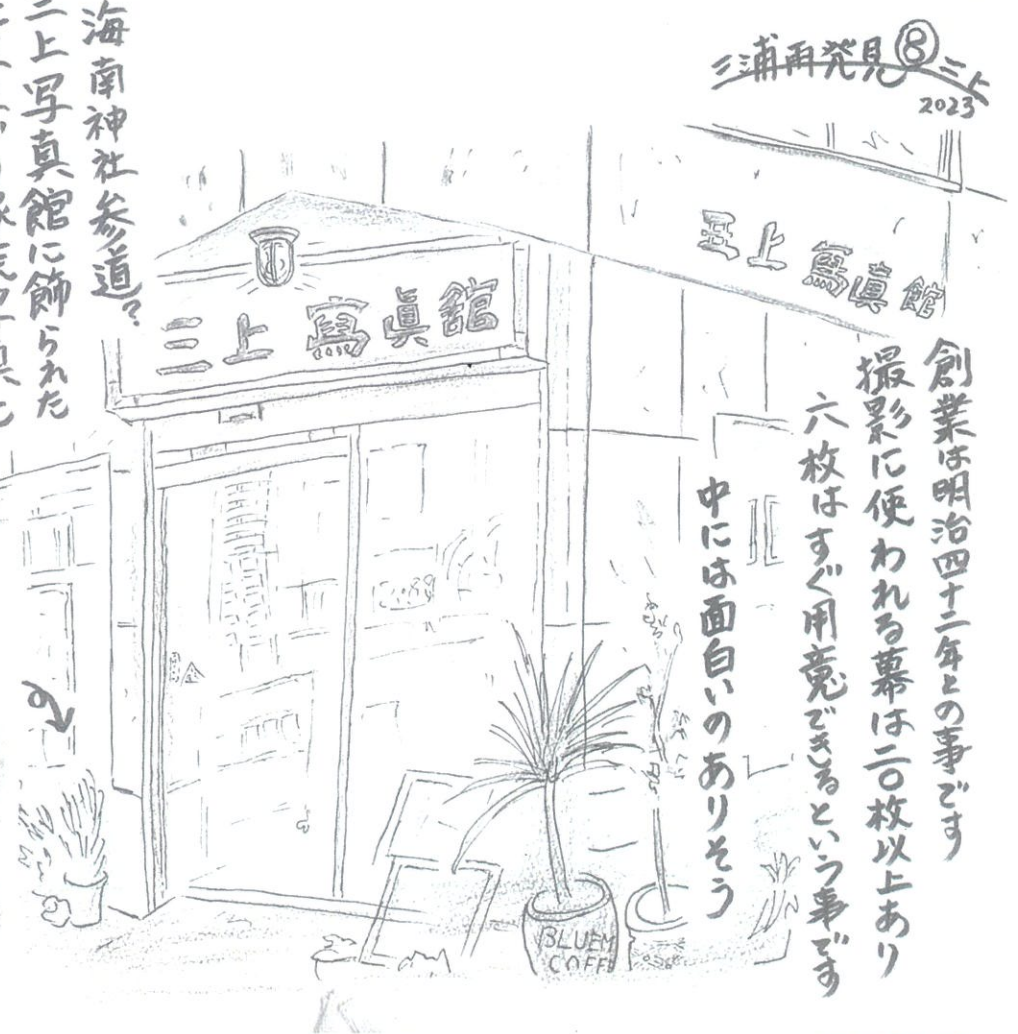 三浦再発見⑧三上
2023
三上寫眞館
三上寫眞館
創業は明治四十二年との事です
撮影に使われる幕は二〇枚以上あり
六枚はすぐ用意できるという事です
中には面白いのありそう
海南神社参道?
三上写真館に飾られた
BLUEM
COFF